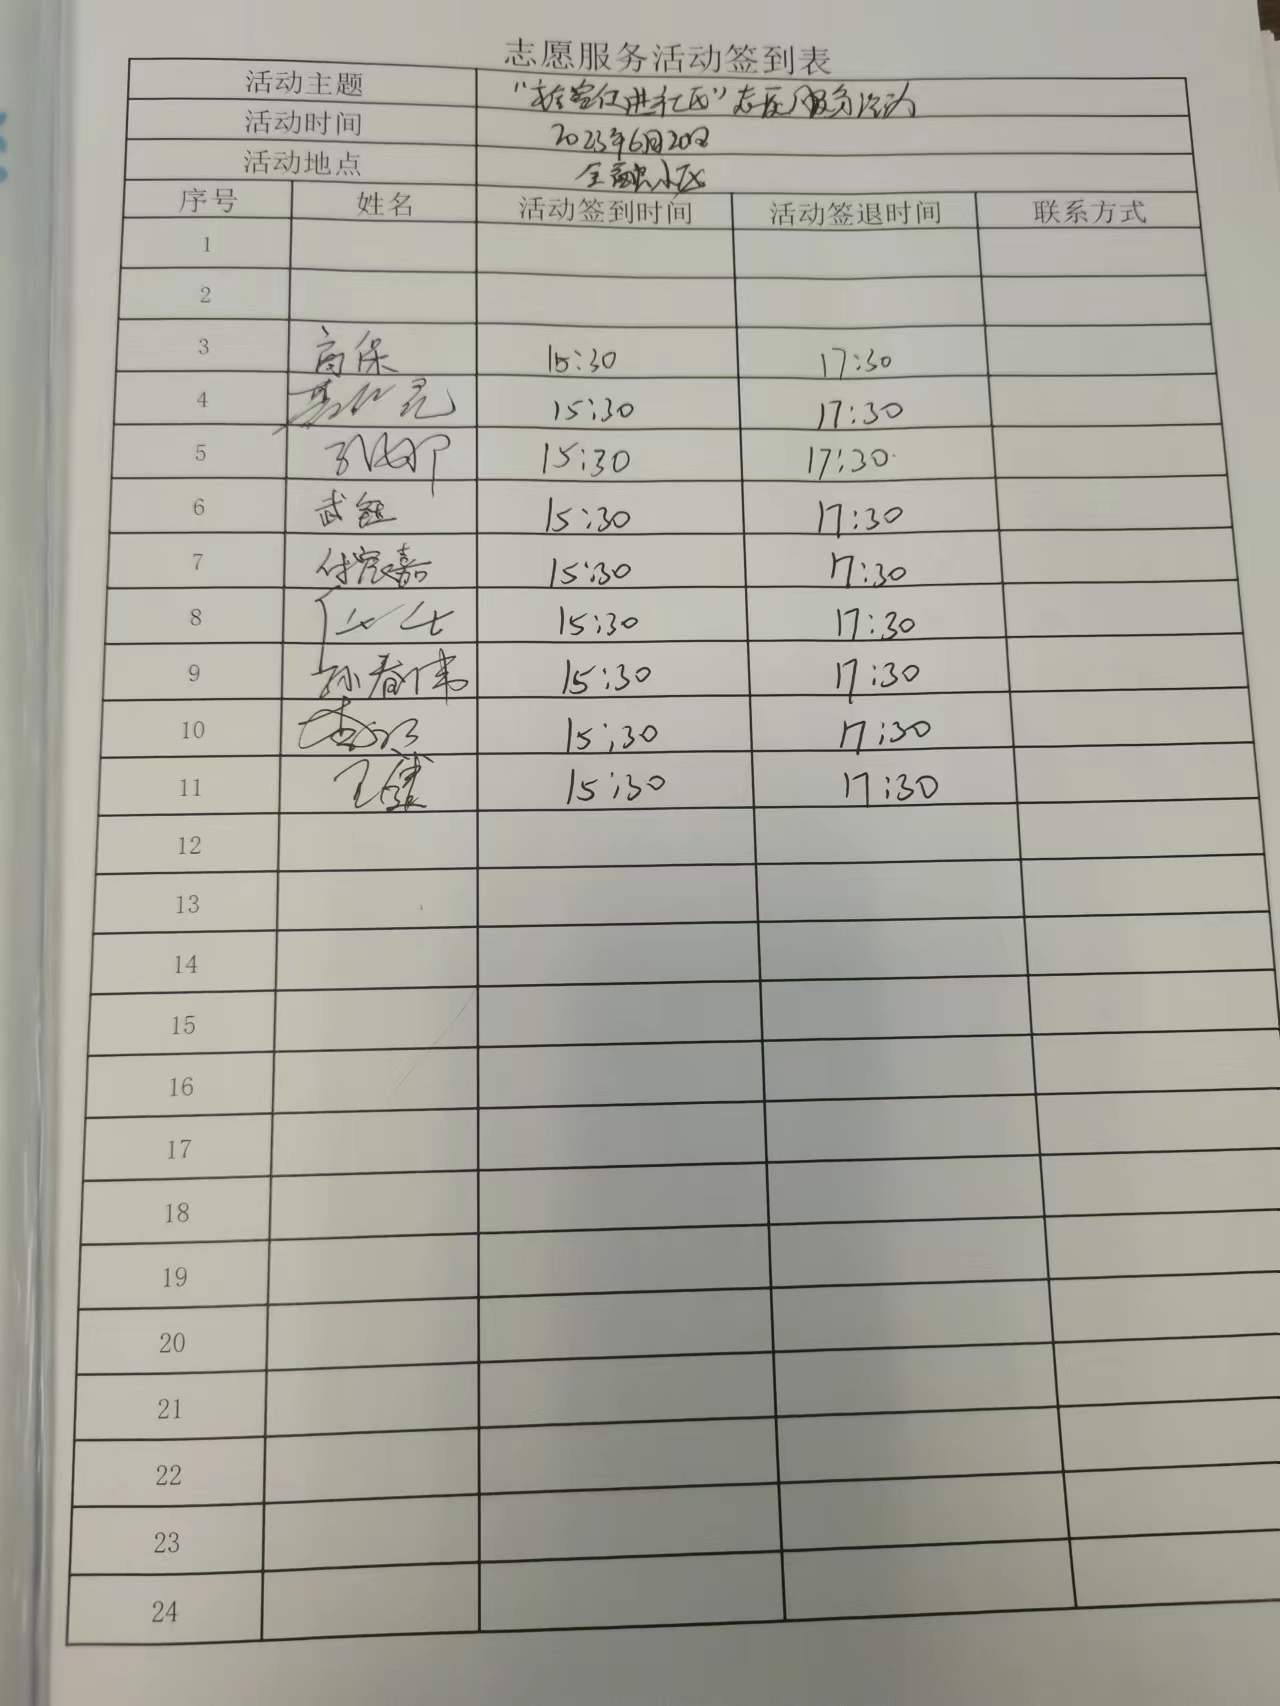 志愿服务活动签到表
活动主题 进社区”志愿服务活动
活动时间 2023年6月20日
活动地点 金融小区
序号 姓名 活动签到时间 活动签退时间 联系方式
1
2
3 高保 15:30 17:30
4 15:30 17:30
5 15:30 17:30
6 武 15:30 17:30
7 付宸嘉 15:30 17:30
8 15:30 17:30
9 孙春伟 15:30 17:30
10 15:30 17:30
11 王 15:30 17:30
12
13
14
15
16
17
18
19
20
21
22
23
24